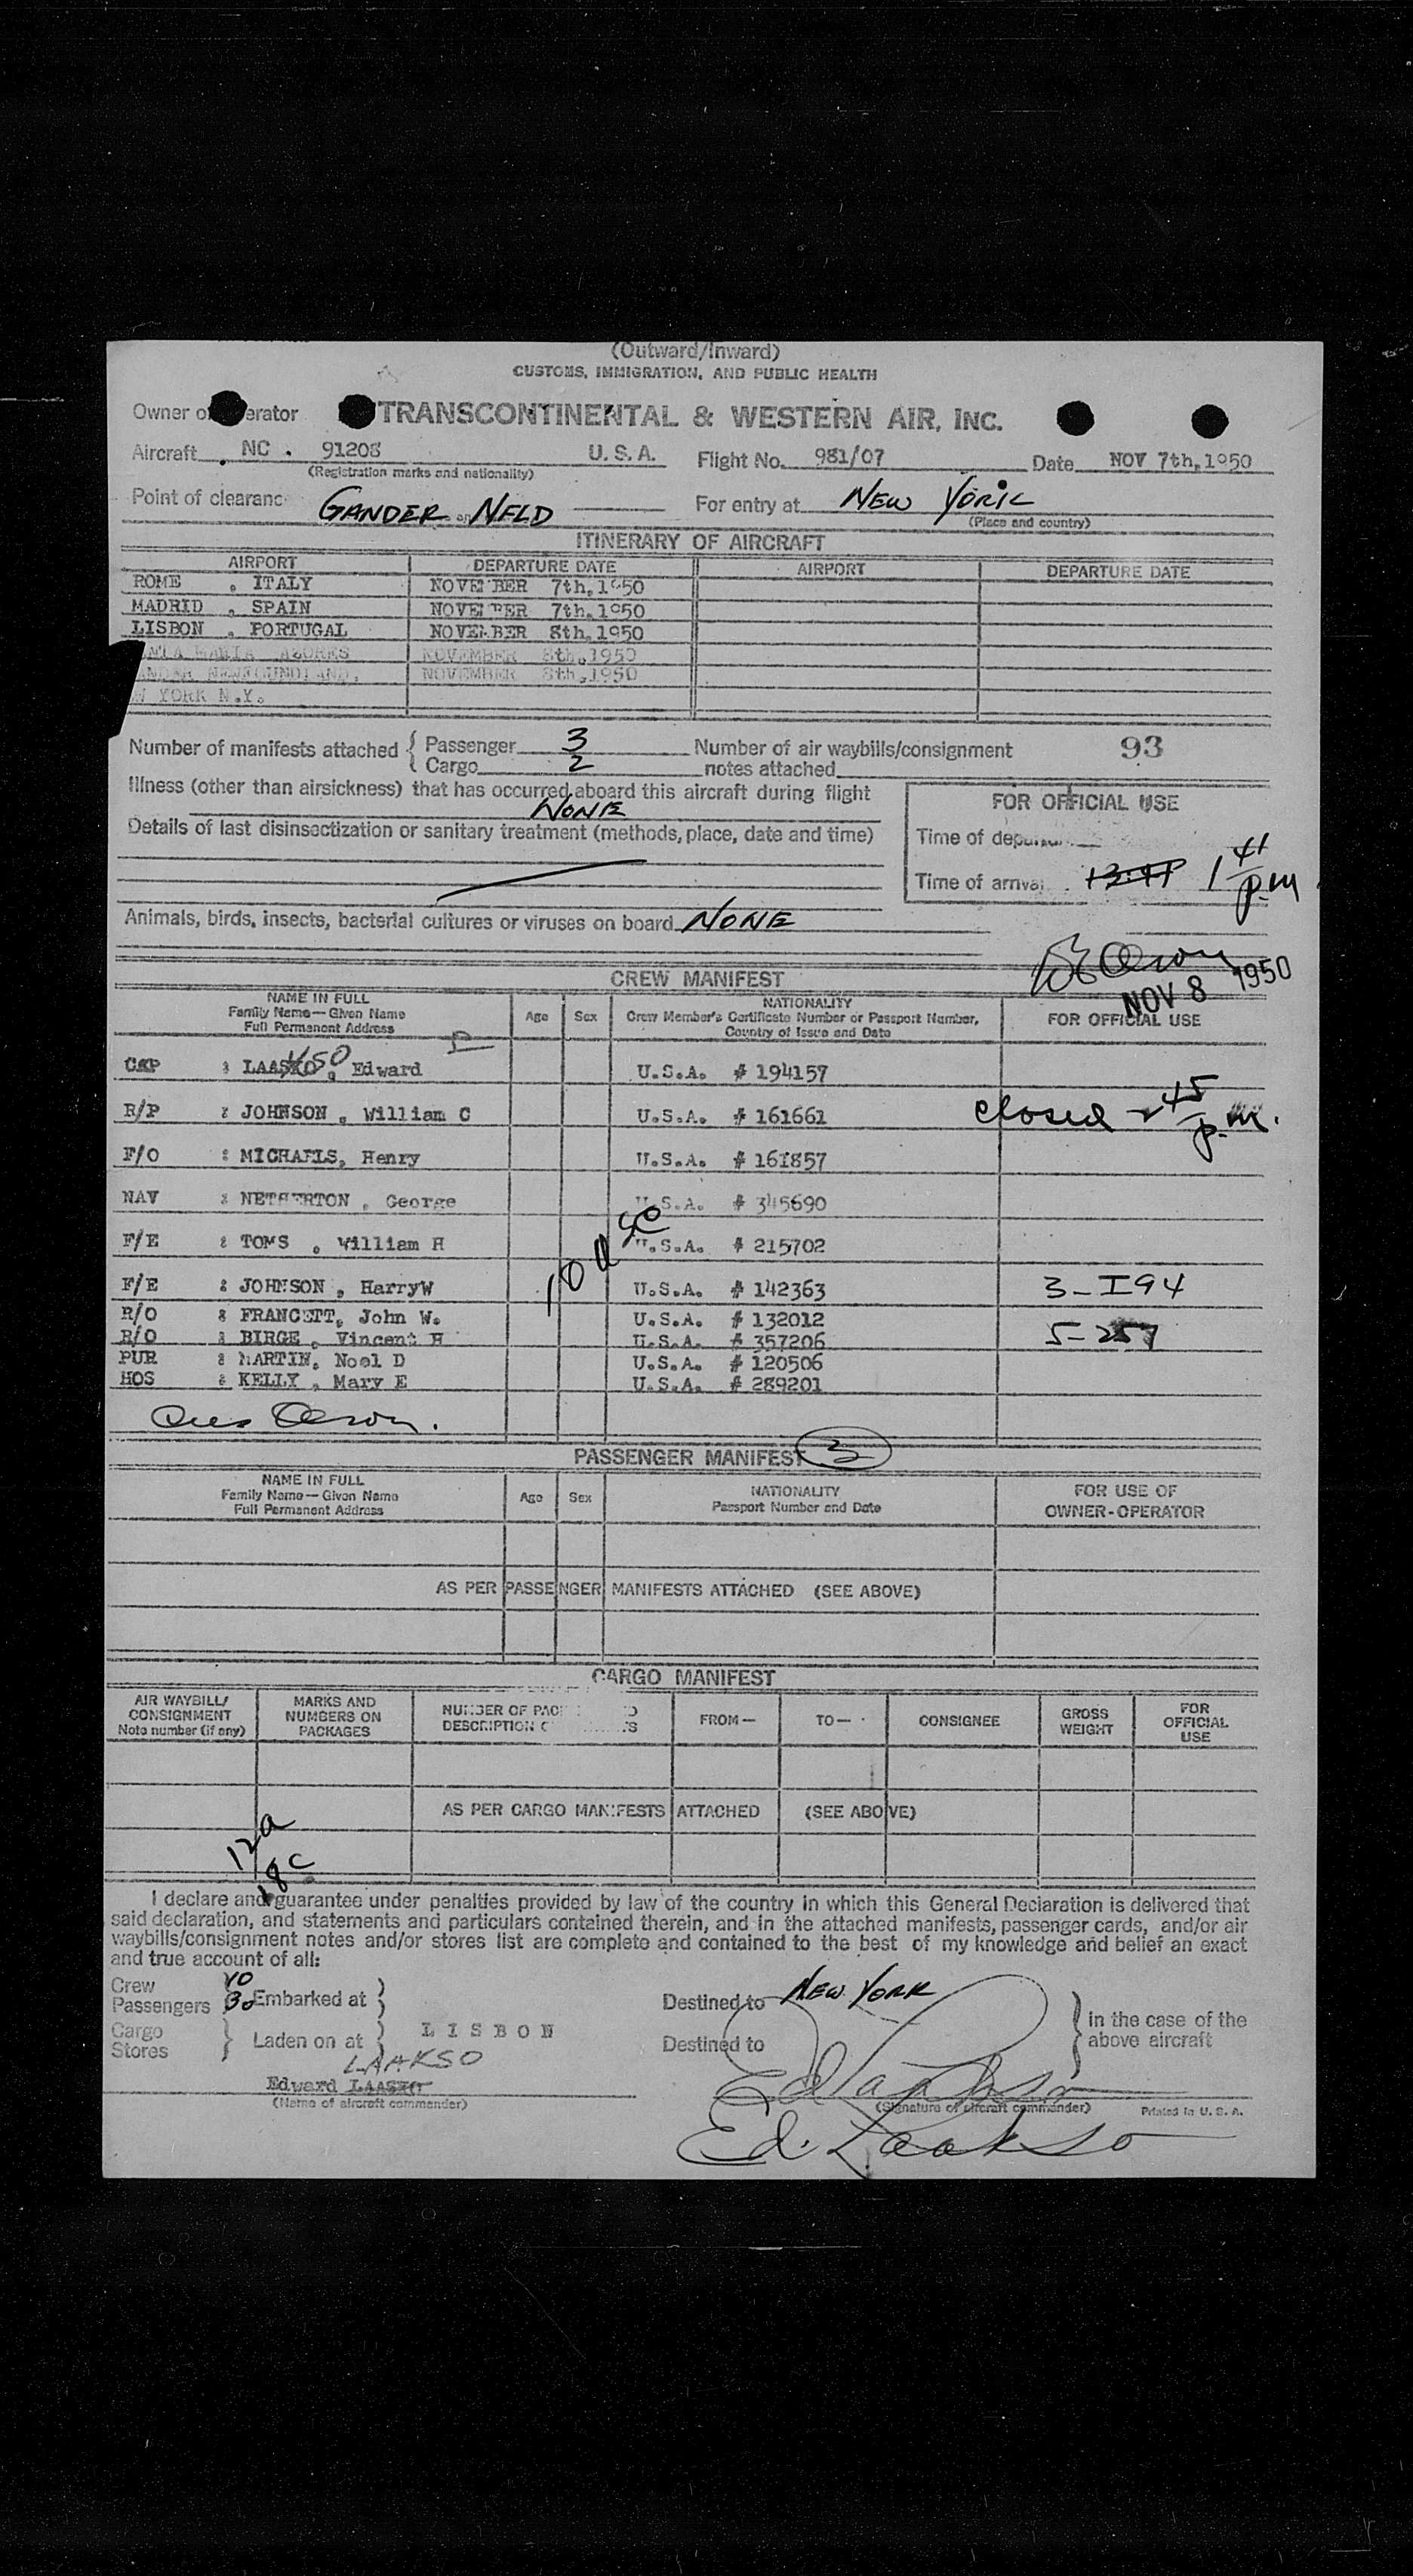 (Outward/Inward)
CUSTOMS, IMMIGRATION, AND PUBLIC HEALTH
Owner o erator TRANSCONTINENTAL & WESTERN AIR, INC.
Aircraft NC . 91208 U.S.A. Flight No. 981/07 Date NOV 7th,1950
(Registration marks and nationality)
Point of clearanc GANDER NFLD For entry at NEW YORK
(Place and country)
ITINERARY OF AIRCRAFT
AIRPORT DEPARTURE DATE AIRPORT DEPARTURE DATE
ROME , ITALY NOVEMBER 7th,1950
MADRID , SPAIN NOVEMBER 7th,1950
LISBON , PORTUGAL NOVEMBER 8th,1950
MARIA AZORES NOVEMBER 8th,1950
ANDER NEWFOUNDLAND, NOVEMBER 8th,1950
W YORK N.Y.
Number of manifests attached { Passenger 3 Number of air waybills/consignment 93
Cargo 2 notes attached
Illness (other than airsickness) that has occurred aboard this aircraft during flight
NONE
FOR OFFICIAL USE
Details of last disinsectization or sanitary treatment (methods, place, date and time)
Time of depar
Time of arrival 1 41 p.m
Animals, birds, insects, bacterial cultures or viruses on board NONE
NOV 8 1950
CREW MANIFEST
NAME IN FULL
Family Name—Given Name
Full Permanent Address
Age Sex
NATIONALITY
Crew Member's Certificate Number or Passport Number,
Country of Issue and Date
FOR OFFICIAL USE
CAP : LAASKO, Edward U.S.A. # 194157
R/P : JOHNSON , William C U.S.A. # 161661 closed 2 45 p.m.
F/O : MICHAELS, Henry U.S.A. # 161857
NAV : NETHERTON , George U.S.A. # 345690
F/E : TOMS , William H U.S.A. # 215702
F/E : JOHNSON , HarryW U.S.A. # 142363 3-I94
R/O : FRANCETT, John W. U.S.A. # 132012
R/O : BIRGE , Vincent H U.S.A. # 357206 5-257
PUR : MARTIN, Noel D U.S.A. # 120506
HOS : KELLY , Mary E U.S.A. # 289201
PASSENGER MANIFEST 3
NAME IN FULL
Family Name—Given Name
Full Permanent Address
Age Sex
NATIONALITY
Passport Number and Date
FOR USE OF
OWNER-OPERATOR
AS PER PASSENGER MANIFESTS ATTACHED (SEE ABOVE)
CARGO MANIFEST
AIR WAYBILL/
CONSIGNMENT
Note number (if any)
MARKS AND
NUMBERS ON
PACKAGES
NUMBER OF PAC
DESCRIPTION
FROM— TO— CONSIGNEE
GROSS
WEIGHT
FOR
OFFICIAL
USE
AS PER CARGO MANIFESTS ATTACHED (SEE ABOVE)
12a
18c
I declare and guarantee under penalties provided by law of the country in which this General Declaration is delivered that
said declaration, and statements and particulars contained therein, and in the attached manifests, passenger cards, and/or air
waybills/consignment notes and/or stores list are complete and contained to the best of my knowledge and belief an exact
and true account of all:
Crew 10
Passengers 30 Embarked at } Destined to NEW YORK
Cargo
Stores } Laden on at } LISBON Destined to } in the case of the
above aircraft
LAAKSO
Edward LAASKO
(Name of aircraft commander) (Signature of aircraft commander) Printed in U.S.A.
Ed. Laakso